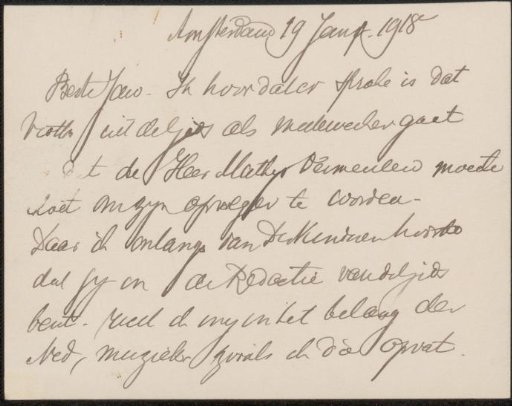 Amsterdam 19 Jan. 1918
Beste Jan. Ik hoor dat er sprake is dat
uit de Gids als medewerker gaat
dat de Heer Mathijs Vermeulen moeite
doet om zijn opvolger te worden.
Daar ik onlangs van Derkinderen hoorde
dat jy in de Redactie van de Gids
bent. Wend ik my in het belang der
Ned, muziek zooals ik die opvat.